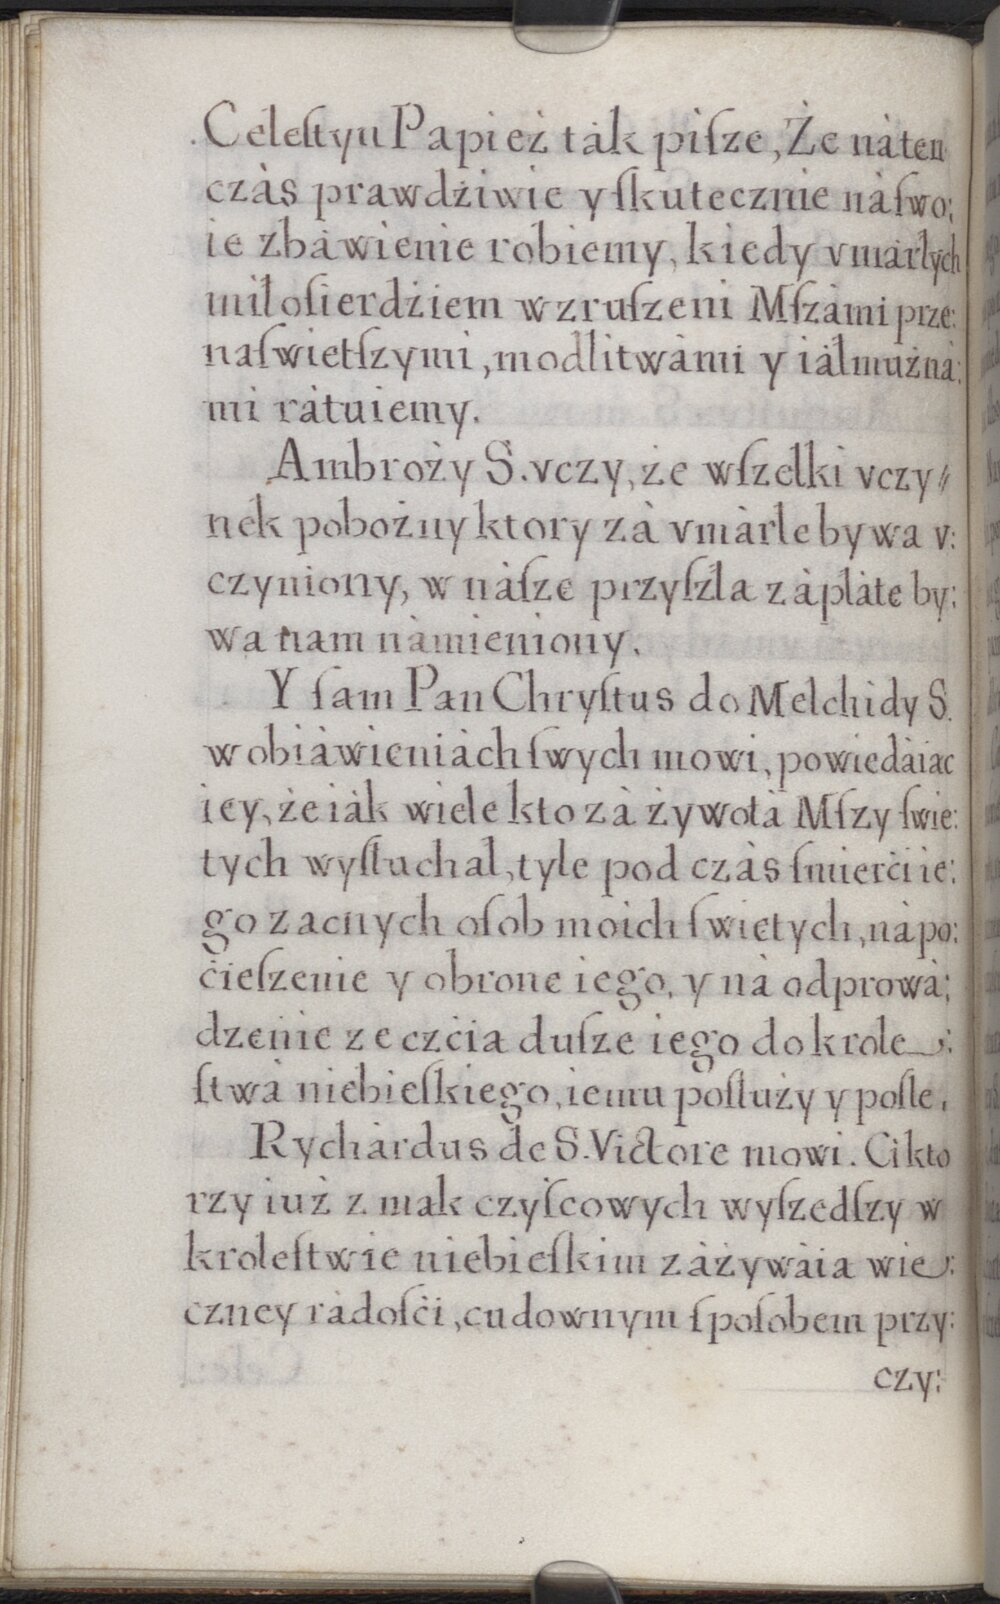 Celeſtyn Papież ták piſze, Że náten
czás prawdźiwie y ſkutecznie náſwo:
ie zbáwienie robiemy, kiedy vmárłych
miłoſierdźiem wzruſzeni Mſzámi prze:
naſwietſzymi, modlitwámi y iáłmużná:
mi rátuiemy.
Ambroży S. vczy, że wſzelki vczy〃
nek pobożny ktory zá vmárłe bywa v:
czyniony, w náſze przyſzła zápłáte by:
wa nam námieniony.
Y ſam Pan Chryſtus do Melchidy S.
w obiáwieniách ſwych mowi, powiedáiac
iey, że iák wiele kto zá żywotá Mſzy ſwie:
tych wyſłuchał, tyle pod czás ſmierći ie:
go zacnych oſob moich ſwiętych, ná po:
ćieſzenie y obrone iego, y ná odprowá:
dzenie ze czćia duſze iego do krole:
ſtwá niebieſkiego, iemu poſłuży y poſle.
Rychárdus de S. Victore mowi. Ci kto
rzy iuż z mak czyſcowych wyſzedſzy w
kroleſtwie niebieſkim záżywáia wie:
czney rádoſći, cudownym ſpoſobem przy:
czy: